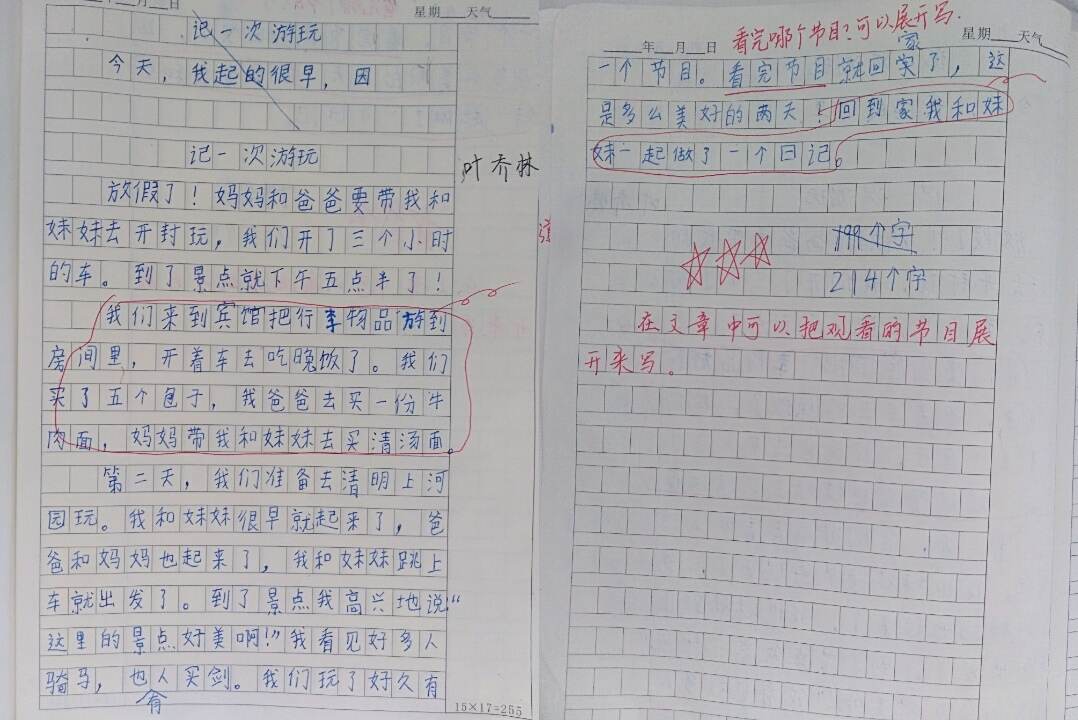 年 月 日
星期 天气
记一次游玩
今天，我起的很早，因
记一次游玩
叶乔林
放假了！妈妈和爸爸要带我和
妹妹去开封玩，我们开了三个小时
的车。到了景点就下午五点半了！
我们来到宾馆把行李物品放到
房间里，开着车去吃晚饭了。我们
买了五个包子，我爸爸去买一份牛
肉面，妈妈带我和妹妹去买清汤面。
第二天，我们准备去清明上河
园玩。我和妹妹很早就起来了，爸
爸和妈妈也起来了，我和妹妹跳上
车就出发了。到了景点我高兴地说“
这里的景点好美啊！”我看见好多人
骑马，也人买剑。我们玩了好久有
有
15×17=255
看完哪个节目？可以展开写．
年 月 日
星期 天气
家
一个节目。看完节目就回家了，这
是多么美好的两天！回到家我和妹
妹一起做了一个回记。
199个字
214个字
在文章中可以把观看的节目展
开来写。